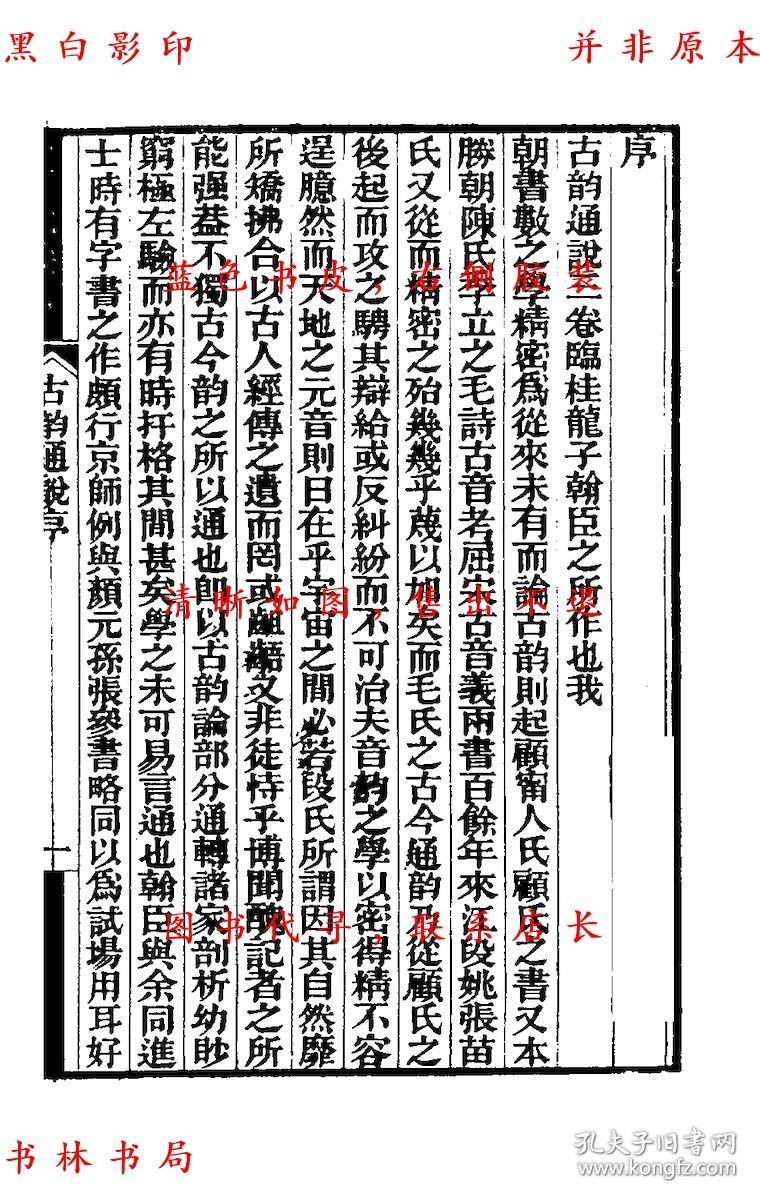 黑白影印
并非原本
序
古韵通說一卷臨桂龍子翰臣之所作也我
朝書數之學精密爲從來未有而論古韵則起顧甯人氏顧氏之書又本
勝朝陳氏季立之毛詩古音考屈宋古音義兩書百餘年來江段姚張苗
氏又從而精密之殆幾幾乎蔑以加矣而毛氏之古今通韵又從顧氏之
後起而攻之騁其辯給或反糾紛而不可治夫音韵之學以密得精不容
逞臆然而天地之元音則日在乎宇宙之間必若段氏所謂因其自然靡
所矯拂合以古人經傳之遺而罔或齟齬又非徒恃乎博聞醜記者之所
能强葢不獨古今韵之所以通也卽以古韵論部分通轉諸家剖析幼眇
窮極左驗而亦有時扞格其間甚矣學之未可易言通也翰臣與余同進
士時有字書之作頗行京師例與顏元孫張參書略同以爲試場用耳好
古韵通說序
一
蓝色书皮,右侧胶装
清晰如图,售出不退
图书代寻,联系店长
书林书局
孔夫子旧书网
www.kongfz.com